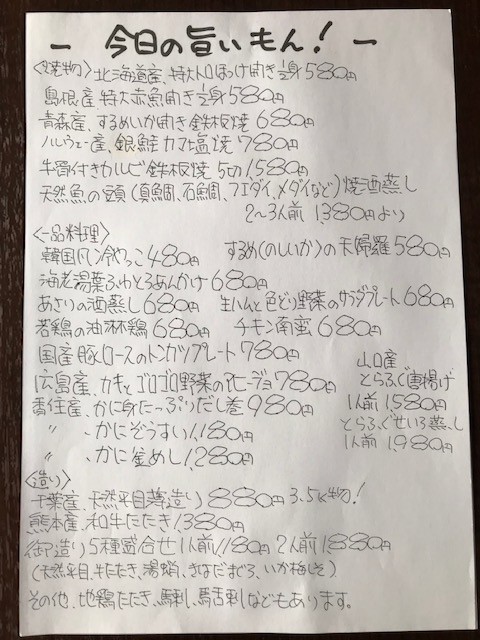 − 今日の旨いもん! −
〈焼物〉北海道産、特大トロほっけ開き½身580円
島根産特大赤魚開き½身580円
青森産、するめいか開き鉄板焼 680円
ノルウェー産、銀鮭カマ塩焼 780円
牛骨付きカルビ鉄板焼 5切1,580円
天然魚の頭(真鯛、石鯛、フエダイ、メダイなど)焼酒蒸し
2〜3人前 1,380円より
〈一品料理〉
韓国風冷やっこ480円 するめ(のしいか)の天婦羅580円
海老湯葉ふわとろあんかけ680円
あさりの酒蒸し680円 生ハムと色どり野菜のサラダプレート680円
若鶏の油淋鶏680円 チキン南蛮680円
国産豚ロースのトンカツプレート780円
広島産、カキとゴロゴロ野菜のアヒージョ780円
香住産、かに身たっぷりだし巻980円
〃 、かにぞうすい1,180円
〃 、かに釜めし1,280円
山口産
とらふぐ唐揚げ
1人前1,580円
とらふぐせいろ蒸し
1人前1,980円
〈造り〉
千葉産、天然平目薄造り880円 3.5K物!
熊本産、和牛たたき1,380円
御造り5種盛合せ1人前1,180円 2人前1,880円
(天然平目、牛たたき、湯蛸、きはだまぐろ、いか梅しそ)
その他、地鶏たたき、馬刺、馬舌刺などもあります。